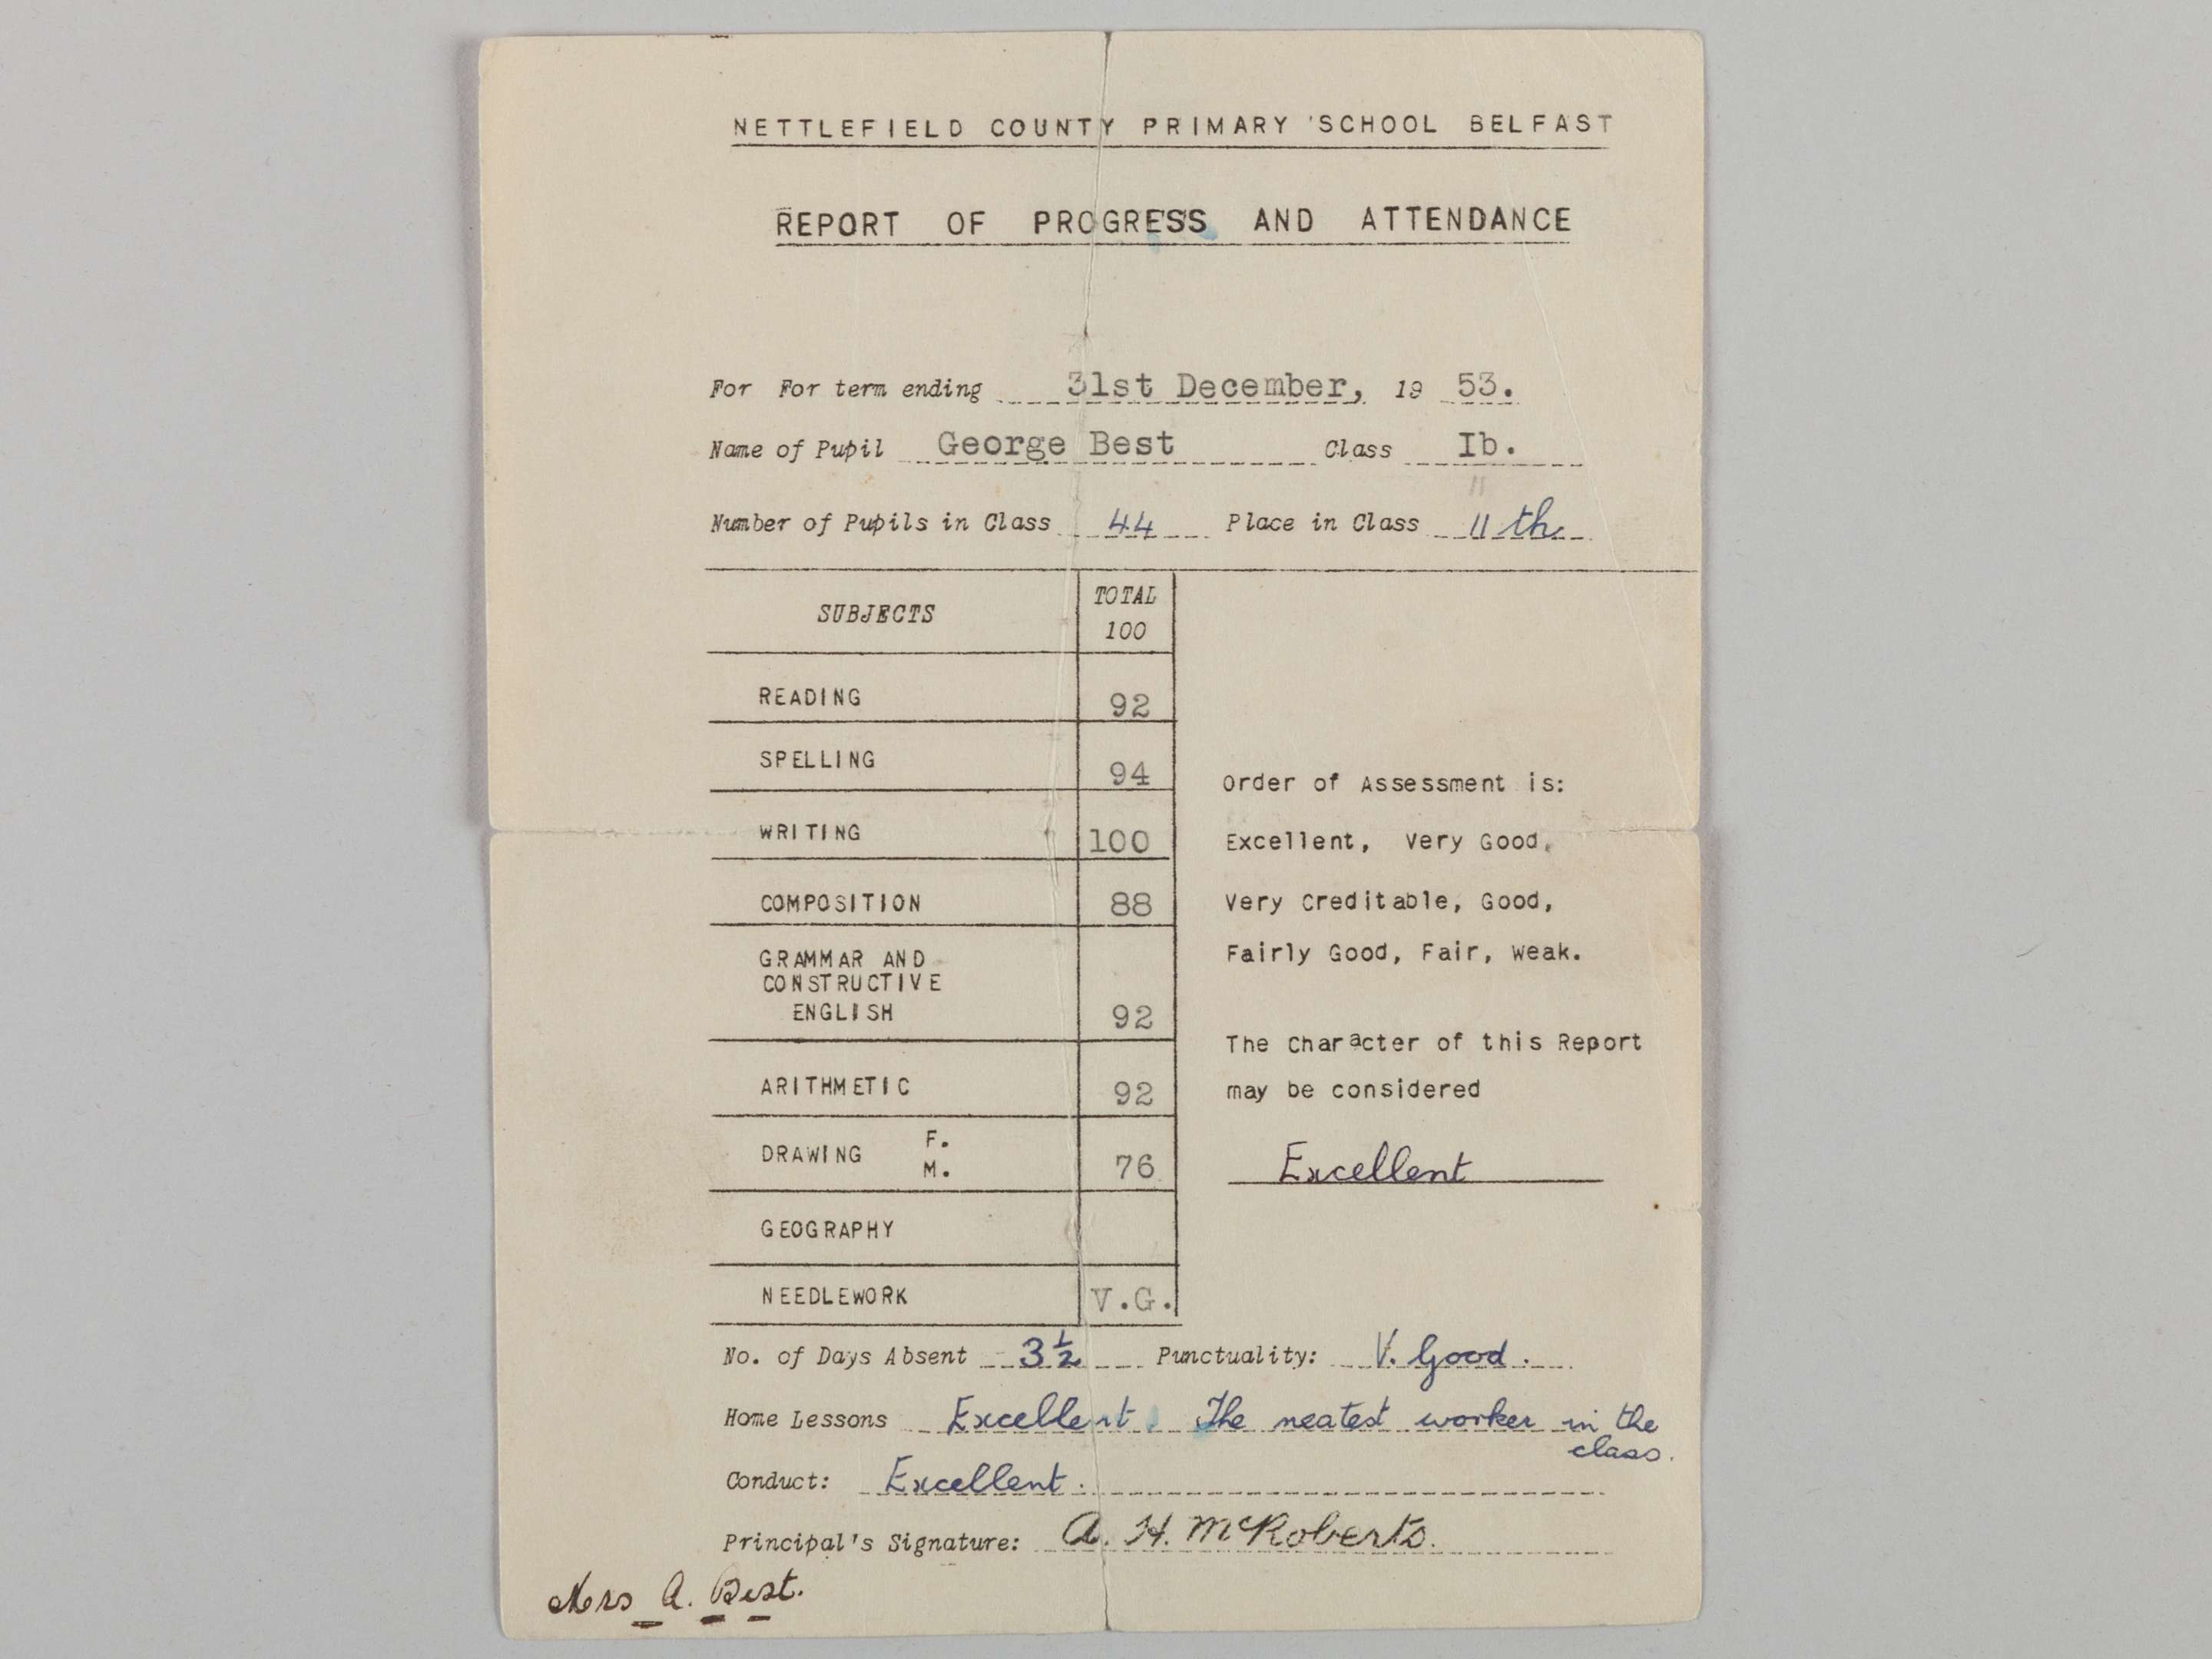 NETTLEFIELD COUNTY PRIMARY 'SCHOOL BELFAST
REPORT OF PROGRESS AND ATTENDANCE
For For term ending 31st December, 19 53.
Name of Pupil George Best Class Ib.
11
Number of Pupils in Class 44 Place in Class 11th
SUBJECTS TOTAL 100
READING 92
SPELLING 94
WRITING 100
COMPOSITION 88
GRAMMAR AND
CONSTRUCTIVE
ENGLISH 92
ARITHMETIC 92
DRAWING F. M. 76
GEOGRAPHY
NEEDLEWORK V.G.
Order of Assessment is:
Excellent, Very Good,
Very Creditable, Good,
Fairly Good, Fair, Weak.
The Character of this Report
may be considered
Excellent
No. of Days Absent 3½ Punctuality: V. Good.
Home Lessons Excellent. The neatest worker in the
class.
Conduct: Excellent.
Principal's Signature: A. H. McRoberts.
Mrs A. Best.